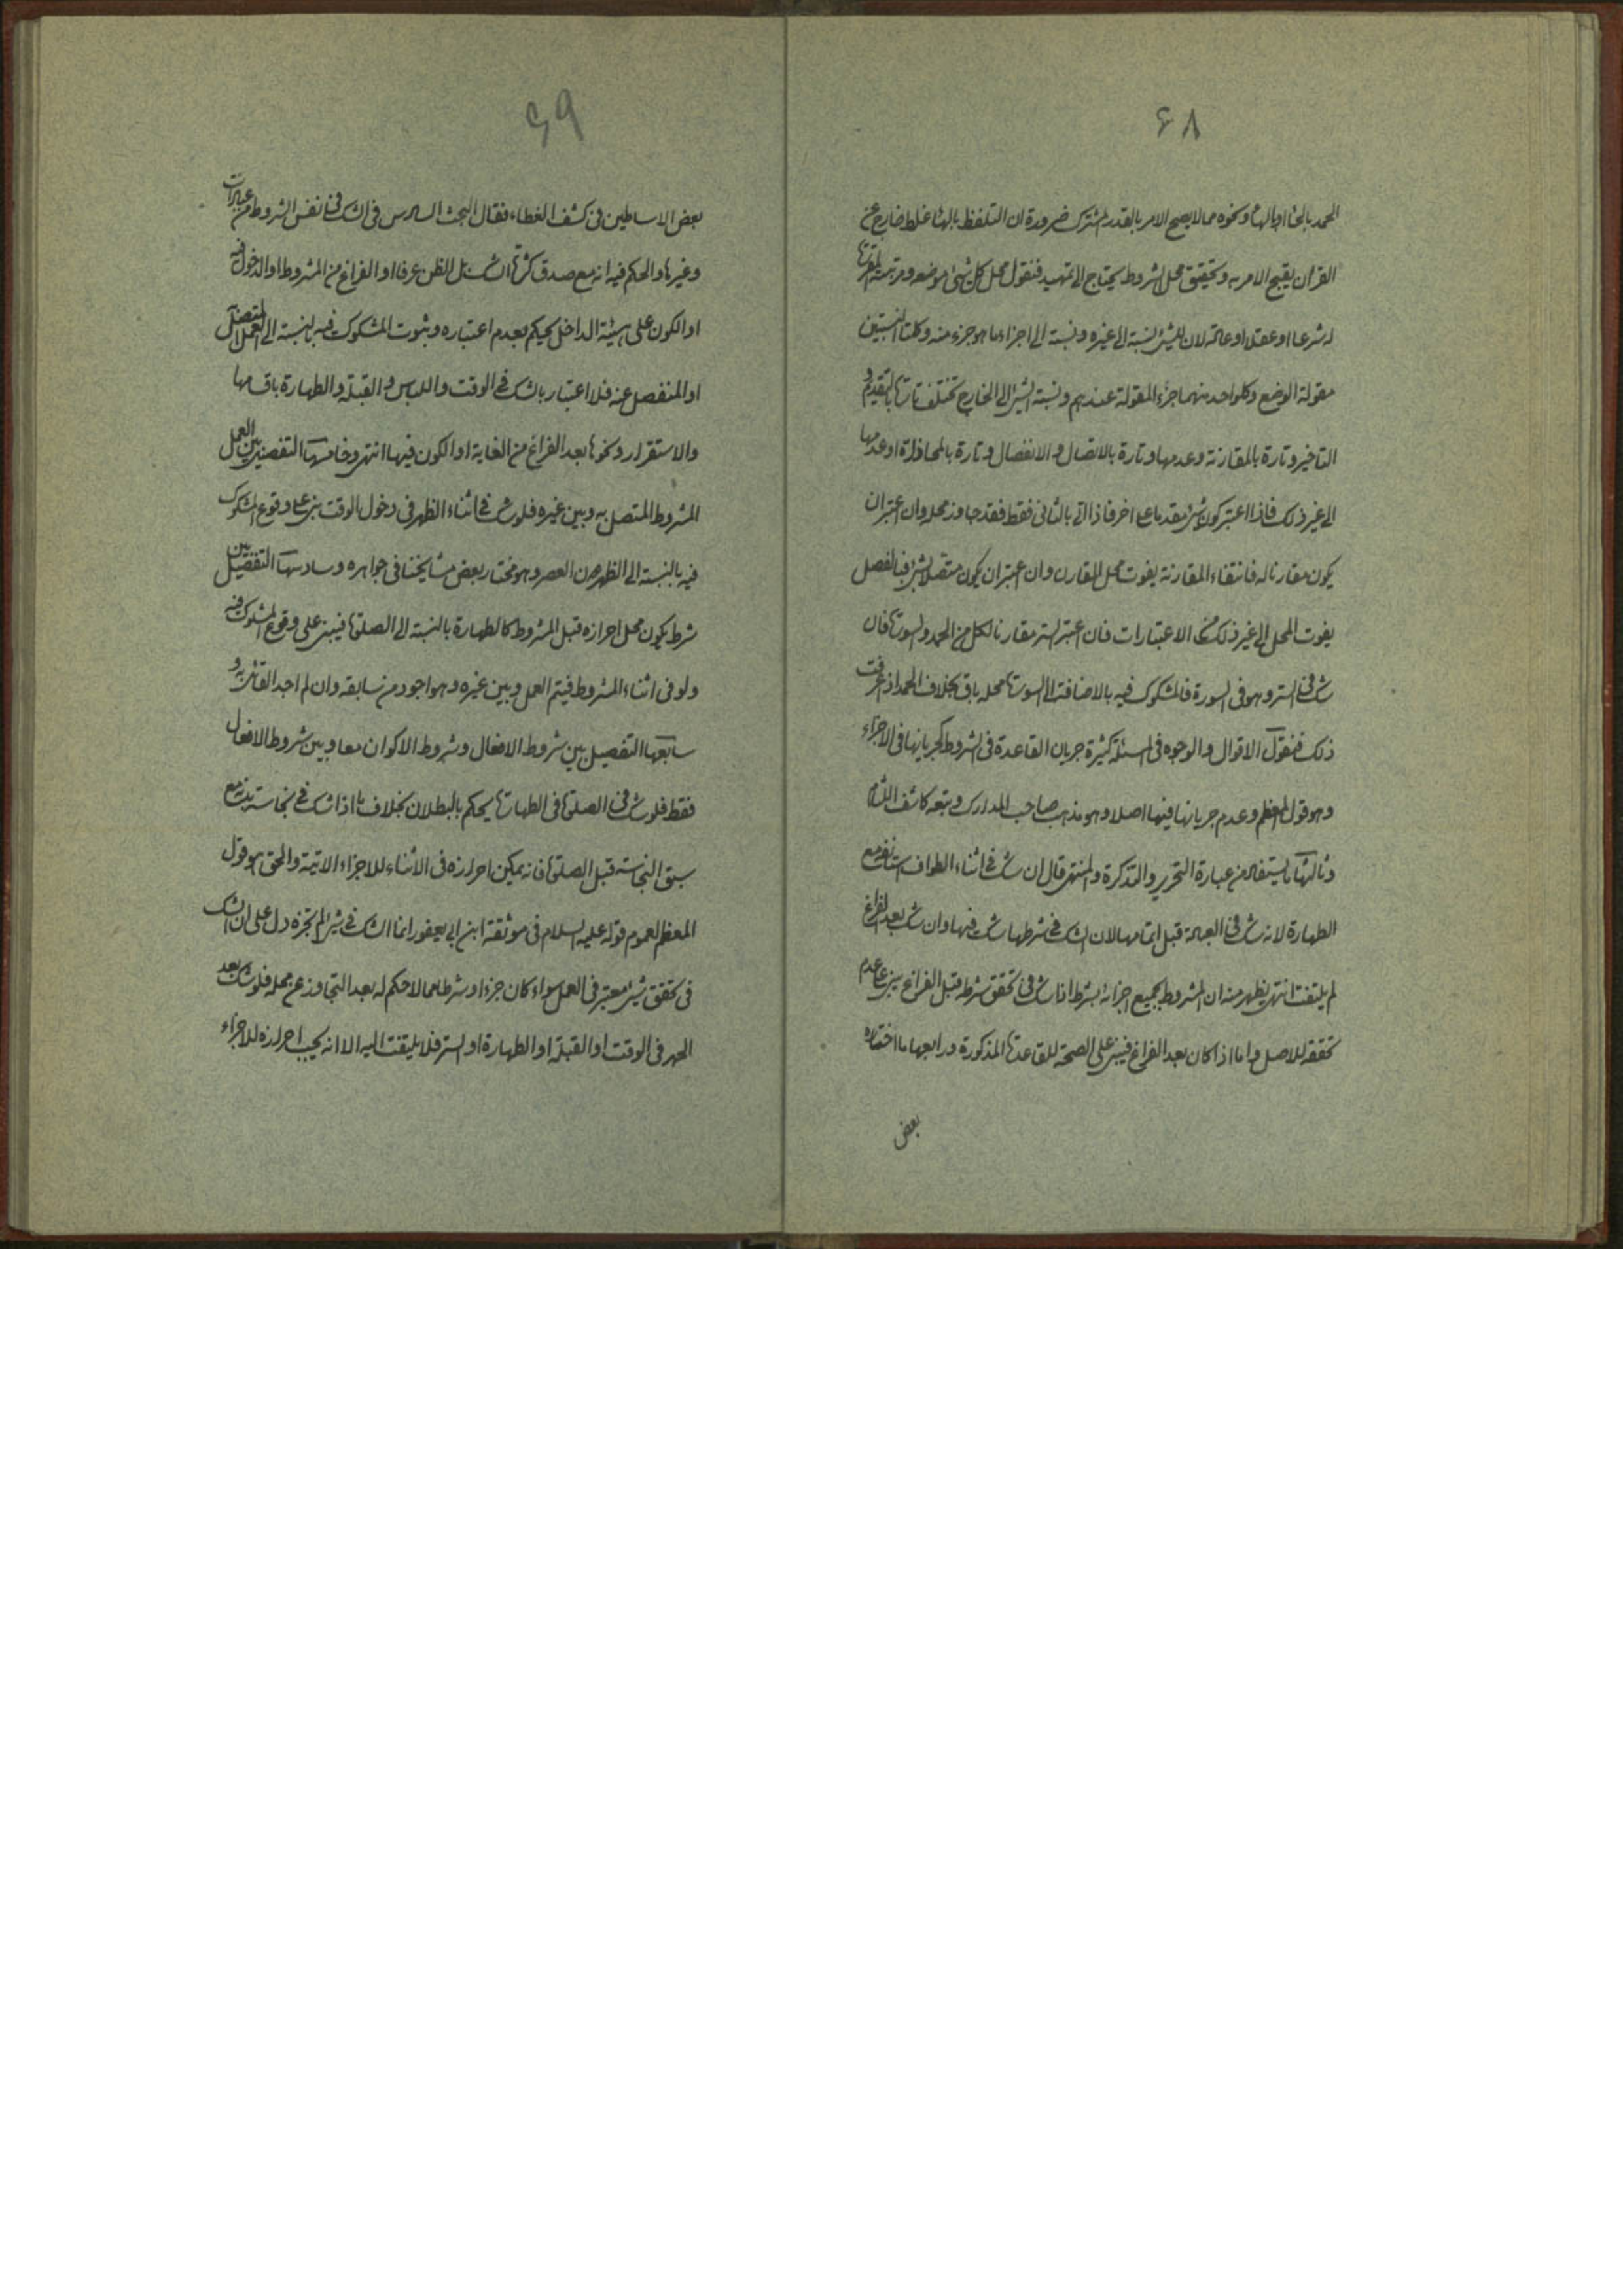 ۶۸
الحمد بالحاء او بالهاء ونحوه مما لا يصح الامر بالقدر المشترك ضرورة ان التلفظ بالهاء غلط خارج عن
القران يقبح الامر به وتحقيق محل الشروط يحتاج الى تمهيد فنقول محل كل شئ موضعه ومرتبته المقررة
له شرعا او عقلا او عادة لان للشئ نسبة الى غيره ونسبة الى اجزاء ما هو جزء منه وكلتا النسبتين
مقولة الوضع وكلواحد منهما جزء المقولة عندهم ونسبة الشئ الى الخارج تختلف تارة بالتقدم و
التاخير وتارة بالمقارنة وعدمها وتارة بالاتصال والانفصال وتارة بالمحاذاة او عدمها
الى غير ذلك فاذا اعتبر كون شئ مقدما على اخر فاذا اتى بالثانى فقط فقد جاوز محله وان اعتبر ان
يكون مقارنا له فانتفاء المقارنة يفوت محل المقارن وان اعتبر ان يكون متصلا بشئ فبالفصل
يفوت المحل الى غير ذلك من الاعتبارات فان اعتبر الستر مقارنا لكل من الحمد والسورة فان
شك فى الستر وهو فى السورة فالمشكوك فيه بالاضافة الى السورة محله باق بخلاف الحمد اذ عرفت
ذلك فنقول الاقوال والوجوه فى المسئلة كثيرة جريان القاعدة فى الشروط كجريانها فى الاجزاء
وهو قول المعظم وعدم جريانها فيها اصلا وهو مذهب صاحب المدارك وتبعه كاشف اللثام
وثالثها ما يستفاد من عبارة التحرير والتذكرة والمنتهى قال ان شك فى اثناء الطواف استانف مع
الطهارة لانه شك فى العبادة قبل اتمامها لان الشك فى شرطها شك فيها وان شك بعد الفراغ
لم يلتفت انتهى يظهر منه ان المشروط بجميع اجزائه بشرط اذا شك فى تحقق شرطه قبل الفراغ يبنى على عدم
تحققه للاصل واما اذا كان بعد الفراغ فيبنى على الصحة للقاعدة المذكورة ورابعها ما اختاره
بعض
۶۹
بعض الاساطين فى كشف الغطاء فقال البحث السادس فى الشك فى نفس الشروط من عبادات
وغيرها والحكم فيه انه مع صدق كثرة الشك بل الظن عرفا او الفراغ من المشروط او الدخول فيه
او الكون على هيئة الداخل يحكم بعدم اعتباره وبثوت المشكوك فيه بالنسبة الى العمل المتصل
او المنفصل عنه فلا اعتبار بالشك فى الوقت واللباس والقبلة والطهارة باقسامها
والاستقرار ونحوها بعد الفراغ من الغاية او الكون فيها انتهى وخامسها التفصيل بين العمل
المشروط المتصل به وبين غيره فلو شك فى اثناء الظهر فى دخول الوقت بنى على وقوع المشكوك
فيه بالنسبة الى الظهر دون العصر وهو مختار بعض مشايخنا فى جواهره وسادسها التفصيل بين
شرط يكون محل احرازه قبل المشروط كالطهارة بالنسبة الى الصلوة فيبنى على وقوع المشكوك فيه
ولو فى اثناء المشروط فيتم العمل وبين غيره وهو اجود من سابقه وان لم اجد القائل به و
سابعها التفصيل بين شروط الافعال وشروط الاكوان معا وبين شروط الافعال
فقط فلو شك فى الصلوة فى الطهارة يحكم بالبطلان بخلاف ما اذا شك فى نجاسة بدنه مع
سبق النجاسة قبل الصلوة فانه يمكن احرازه فى الاثناء للاجزاء الاتية والحق هو قول
المعظم لعموم قوله عليه السلام فى موثقة ابن ابى يعفور انما الشك فى شئ لم تجزه دل على ان الشك
فى تحقق شئ معتبر فى العمل سواء كان جزءا او شرطا مما لا حكم له بعد التجاوز عن محله فلو شك بعد
الحمد فى الوقت او القبلة او الطهارة او الستر فلا يلتفت اليه الا انه يجب احرازه للاجزاء